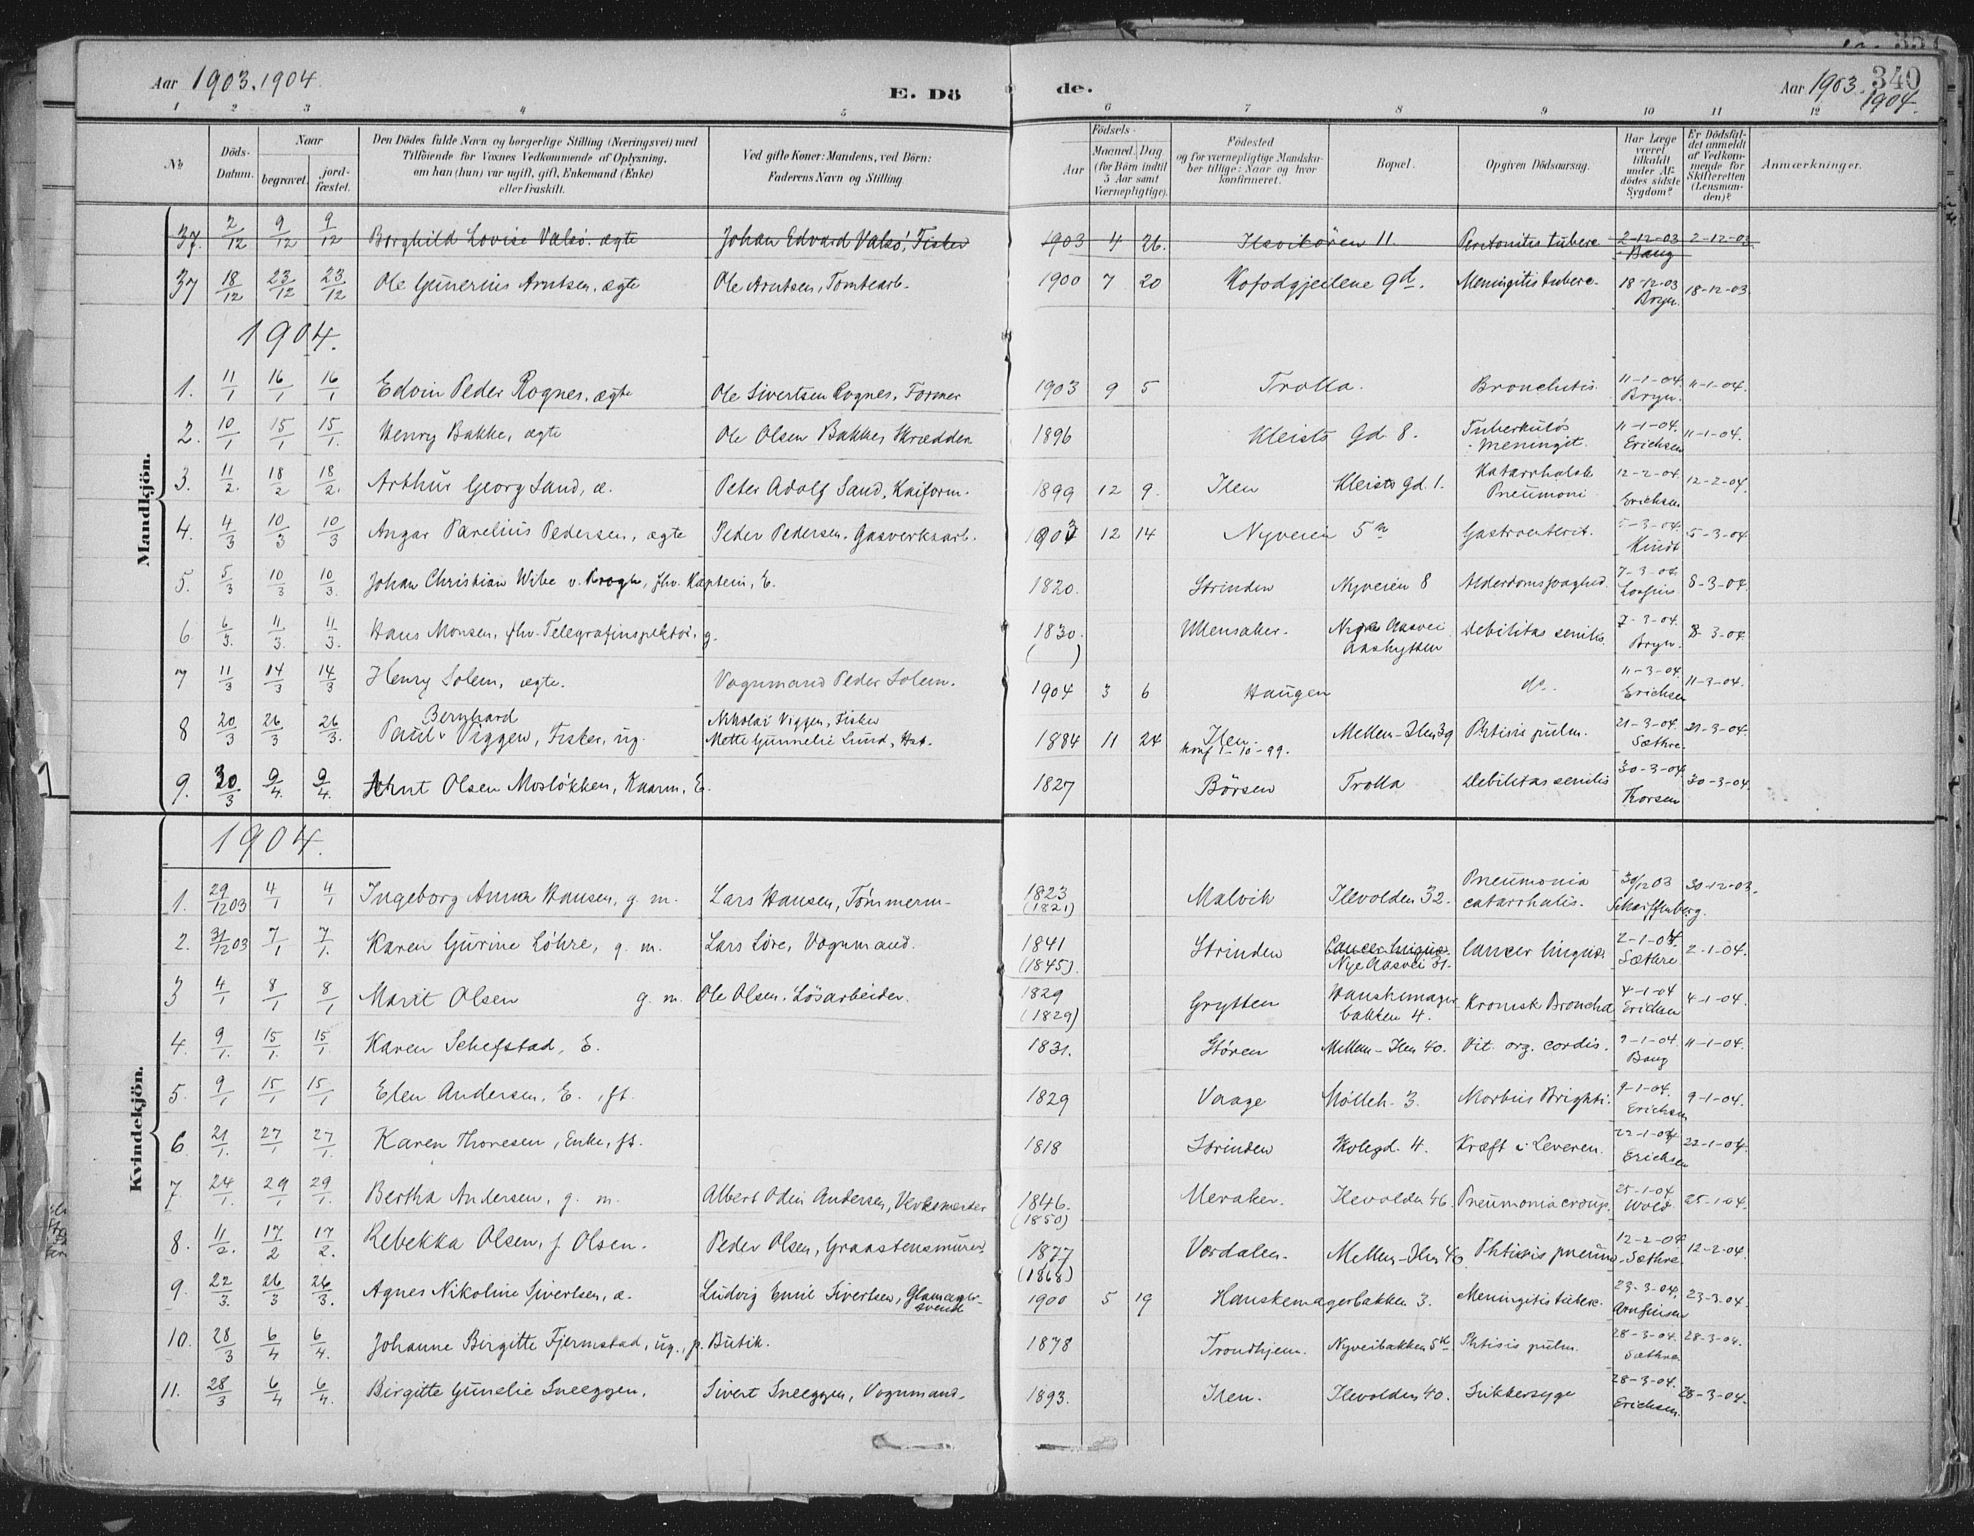 Aar 1903. 1904.
E. Dö de.
Aar 1903. 340
1904.
1 2 3 4 5 6 7 8 9 10 11 12
No
Döds-Datum.
Naar
begravet.
jord-fæstet.
Den Dödes fulde Navn og borgerlige Stilling (Næringsvei) med
Tilföiende for Voxnes Vedkommende af Oplysning,
om han (hun) var ugift, gift, Enkemand (Enke)
eller fraskilt.
Ved gifte Koner: Mandens, ved Börn:
Faderens Navn og Stilling
Födsels-
Aar
Maaned. Dag
(for Börn indtil
5 Aar samt
Værnepligtige).
Födested
og for værnepligtige Mandska-
ber tillige: Naar og hvor
konfirmeret.
Bopæl.
Opgiven Dödsaarsag.
Har Læge
været
tilkaldt
under Af-
dödes sidste
Sygdom?
Er Dödsfal-
det anmeldt
af Vedkom-
mende for
Skifteretten
(Lensman-
den)?
Anmærkninger.
37. 2/12 9/12 9/12 Borghild Lovise Valsø. ægte Johan Edvard Valsø, Fisker 1903 4 26. Ilsvikøren 11. Peritonitis tuberc 2-12-03 Bang 2-12-03
37 18/12 23/12 23/12 Ole Gunerius Arntsen, ægte Ole Arntsen, Tomtearb. 1900 7 20 Kofodgjeilene 9d. Meningitis tuberc. 18-12-03 Bryn. 18-12-03
1904.
Mandkjön.
1. 11/1 16/1 16/1 Edvin Peder Rognes, ægte Ole Sivertsen Rognes, Former 1903 9 5 Trolla. Bronchitis. 11-1-04. Bryn. 11-1-04.
2. 10/1 15/1 15/1. Henry Bakke, ægte Ole Olsen Bakke, Skrædder 1896 Kleists Gd. 8. Tuberkuløs Meningit. 11-1-04. Erichsen 11-1-04.
3. 11/2. 18/2 18/2. Arthur Georg Sand, æ. Peter Adolf Sand, Kaiform. 1899 12 9. Ilen Kleists Gd. 1. Katarrhalsk Pneumoni 12-2-04. Erichsen 12-2-04.
4. 4/3 10/3 10/3 Angar Parelius Pedersen, ægte Peder Pedersen. Gasverksarb. 1903 12 14 Nyveien 5a Gastroenterit. 5-3-04. Kindt 5-3-04
5. 5/3 10/3 10/3. Johan Christian Wibe v. Krogh, fhv. Kaptein, E. 1820. Strinden Nyveien 8 Alderdomssvaghed. 7-3-04 8-3-04.
6. 6/3. 11/3 11/3. Hans Monsen, fhv. Telegrafinspektør, g. 1830. ( ) Ullensaker. Nye Aasvei Aashytten Debilitas senilis. 7-3-04. Bryn. 8-3-04.
7 11/3 14/3 14/3 Henry Solem, ægte. Vognmand Peder Solem. 1904 3 6 Haugen do. 11-3-04. Erichsen 11-3-04.
8 20/3 26/3 26/3. Paul Bernhard Viggen, Fisker, ug. Nikolai Viggen, Fisker
Mette Gunnelie Lund, Hst. 1884 11 24 Ilen. konf 1-10-99. Mellem-Ilen 39 Phtisis pulm. 21-3-04. Sæthre. 21-3-04.
9. 30/3 9/4. 9/4. Arnt Olsen Mosløkken, Kaarm, E. 1827 Börsen Trolla Debilitas senilis 30-3-04 Thorsen 30-3-04.
1904.
Kvindekjön.
1. 29/12 03 4/1 4/1 Ingeborg Anna Hansen, g. m. Lars Hansen, Tömmerm. 1823 (1821) Malvik Ilevolden 32. Pneumonia catarrhalis. 30/12 03 Scharffenberg. 30-12-03.
2. 31/12 03 7/1 7/1. Karen Gurine Löhre, g. m. Lars Löre, Vognmand. 1841 (1845). Strinden Cancer linguæ. Nye Aasvei 31. Cancer linguæ. 2-1-04. Sæthre 2-1-04.
3 4/1 8/1 8/1 Marit Olsen g. m. Ole Olsen, Løsarbeider. 1829 (1829) Grytten Hanskemagerbakken 4. Kronisk Bronchit 4-1-04 Erichsen 4-1-04.
4. 9/1. 15/1. 15/1 Karen Schefstad, E. 1831. Stören Mellem-Ilen 40. Vit. org. cordis. 9-1-04. Bang 11-1-04.
5. 9/1 15/1 15/1 Elen Andersen, E., ft. 1829 Vaage Mölleb. 3. Morbus Brighti. 9-1-04. Erichsen 9-1-04.
6 21/1. 27/1 27/1. Karen Thoresen, Enke, ft. 1818 Strinden Skolegd. 4. Kræft i Leveren. 22-1-04 Erichsen 22-1-04.
7. 24/1. 29/1 29/1. Bertha Andersen, g. m. Albert Odin Andersen, Verksmester 1846. (1850) Meraker. Ilevolden 46. Pneumonia croup. 25-1-04 Wold. 25-1-04.
8. 11/2. 17/2 17/2. Rebekka Olsen, f. Olsen. Peder Olsen, Graastensmurer 1877 (1868) Værdalen. Mellem-Ilen 40. Phtisis pneum. 12-2-04 Sæthre. 12-2-04.
9. 22/3. 26/3 26/3. Agnes Nikoline Sivertsen, æ. Ludvig Emil Sivertsen, Glamagersvend 1900 5 19 Hanskemagerbakken 3. Meningitis tuberc. 23-3-04. Arnfinsen 23-3-04.
10. 28/3 6/4 6/4. Johanne Birgitte Fjermstad, ug., p. Butik. 1878 Trondhjem. Nyveibakken 5 Phtisis pulm. 28-3-04. Sæthre 28-3-04.
11. 28/3 6/4 6/4. Birgitte Gunelie Sneeggen. Sivert Sneeggen, Vognmand. 1893. Ilen. Ilevolden 40. Sukkersyge 28-3-04. Erichsen. 28-3-04.